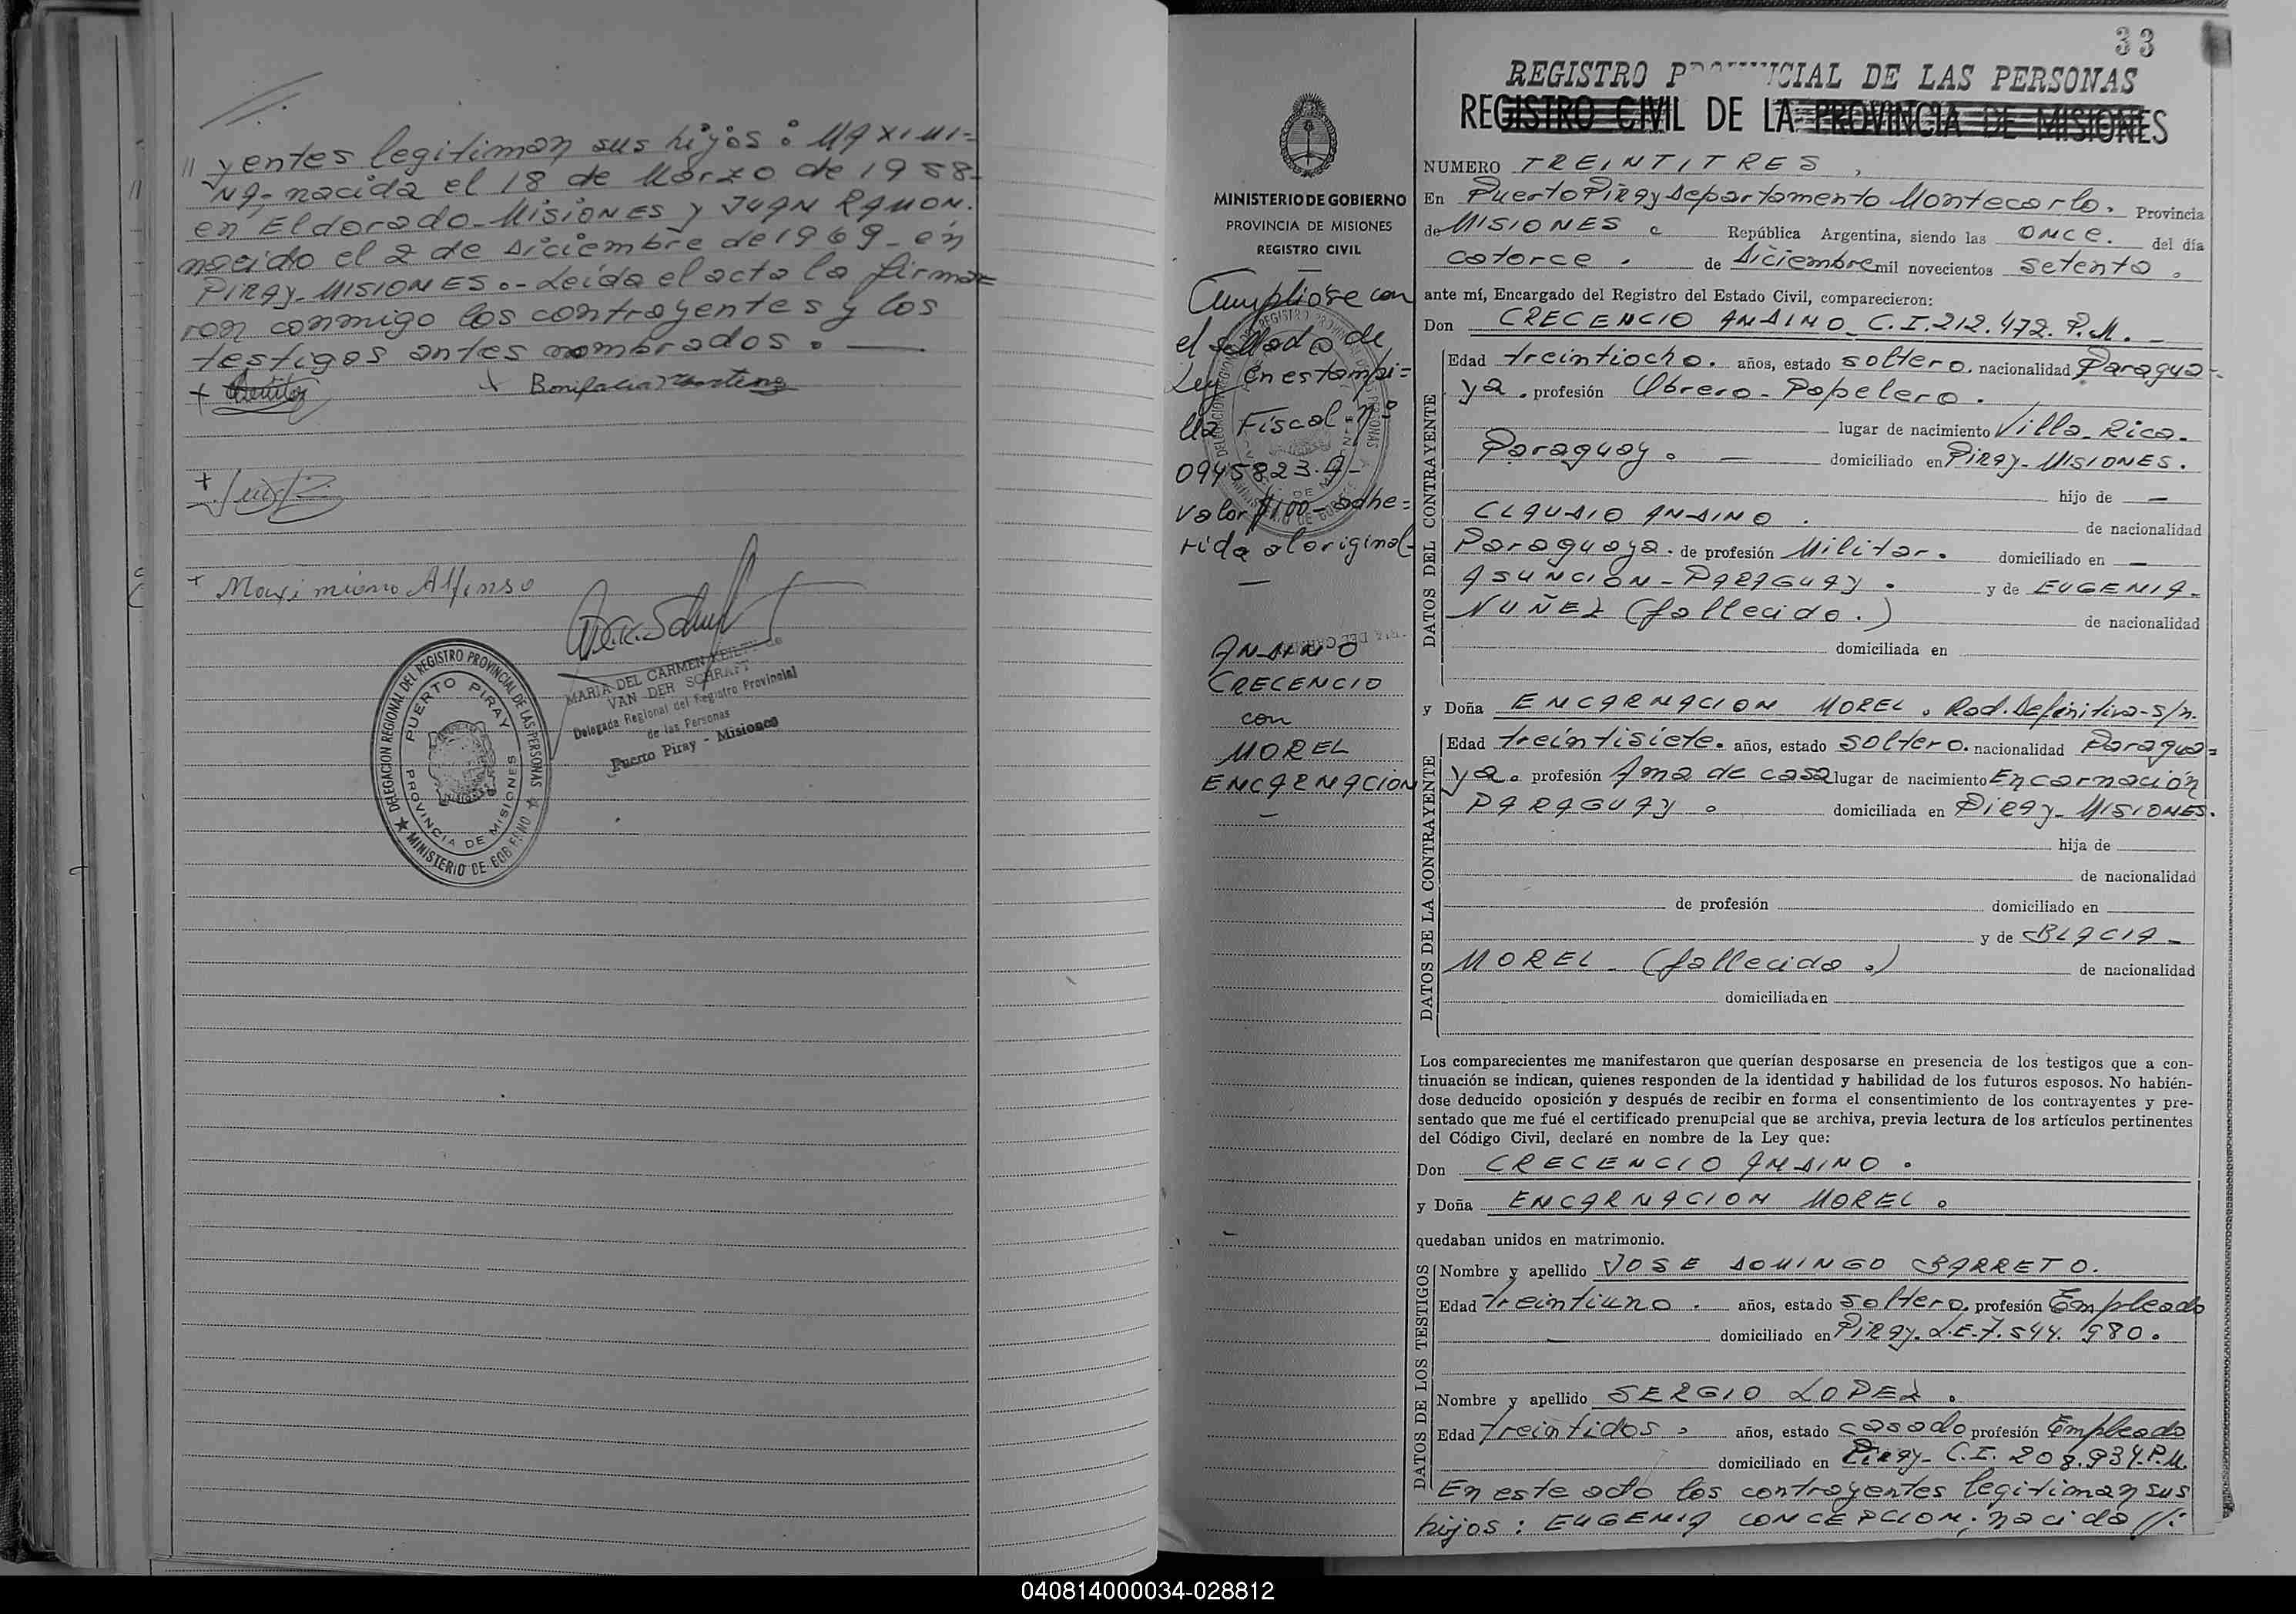 //.
// yentes legitiman sus hijos: MAXIMI=
NA- nacida el 18 de Marzo de 1958-
en Eldorado- MISIONES y JUAN RAMON.
nacido el 2 de Diciembre de 1969- en
PIRAY- MISIONES.- Leída el acta la firma=
ron conmigo los contrayentes y los
testigos antes nombrados. —
+ + Bonifacia
+
+ Maximiano Alfonso
MARIA DEL CARMEN de
VAN DER SCHRAFT
Delegada Regional del Registro Provincial
de las Personas
Puerto Piray - Misiones
DELEGACION REGIONAL DEL REGISTRO PROVINCIAL DE LAS PERSONAS
★ MINISTERIO DE GOBIERNO ★
PUERTO PIRAY
PROVINCIA DE MISIONES
MINISTERIO DE GOBIERNO
PROVINCIA DE MISIONES
REGISTRO CIVIL
Cumpliose con
el sellado de
Ley en estampi=
lla Fiscal Nº
0945823.9-
valor $100- adhe=
rida al original-
—
ANDINO
CRECENCIO
con
MOREL
ENCARNACION
—
33
REGISTRO PROVINCIAL DE LAS PERSONAS
REGISTRO CIVIL DE LA PROVINCIA DE MISIONES
NUMERO TREINTITRES
En Puerto PIRAY Departamento Montecarlo. Provincia
de MISIONES República Argentina, siendo las once. del día
catorce. de Diciembre mil novecientos setenta.
ante mí, Encargado del Registro del Estado Civil, comparecieron:
Don CRECENCIO ANDINO- C.I. 212.472. P.M.-
DATOS DEL CONTRAYENTE
Edad treintiocho. años, estado soltero. nacionalidad Paragua-
ya. profesión Obrero- Papelero.
lugar de nacimiento Villa- Rica-
Paraguay. — domiciliado en PIRAY- MISIONES.
hijo de —
CLAUDIO ANDINO. de nacionalidad
Paraguaya. de profesión Militar. domiciliado en —
ASUNCION- PARAGUAY. y de EUGENIA-
NUÑEZ (fallecida.) de nacionalidad
domiciliada en
y Doña ENCARNACION MOREL. Rad. Definitiva- S/n.
DATOS DE LA CONTRAYENTE
Edad treintisiete. años, estado soltero. nacionalidad Paragua=
ya. profesión Ama de casa lugar de nacimiento Encarnación
PARAGUAY. domiciliada en PIRAY- MISIONES.
hija de
de nacionalidad
de profesión domiciliado en
y de BLACIA-
MOREL- (fallecida.) de nacionalidad
domiciliada en
Los comparecientes me manifestaron que querían desposarse en presencia de los testigos que a con-
tinuación se indican, quienes responden de la identidad y habilidad de los futuros esposos. No habién-
dose deducido oposición y después de recibir en forma el consentimiento de los contrayentes y pre-
sentado que me fué el certificado prenupcial que se archiva, previa lectura de los artículos pertinentes
del Código Civil, declaré en nombre de la Ley que:
Don CRECENCIO ANDINO.
y Doña ENCARNACION MOREL.
quedaban unidos en matrimonio.
DATOS DE LOS TESTIGOS
Nombre y apellido JOSE DOMINGO BARRETO.
Edad Treintiuno. años, estado soltero. profesión Empleado
— domiciliado en PIRAY. L.E. 7.544.980.
Nombre y apellido SERGIO LOPEZ.
Edad treintidos. años, estado casado profesión Empleado
domiciliado en Piray- C.I. 208.934. P.M.
En este acto los contrayentes legitiman sus
hijos: EUGENIA CONCEPCION; nacida //:
040814000034-028812